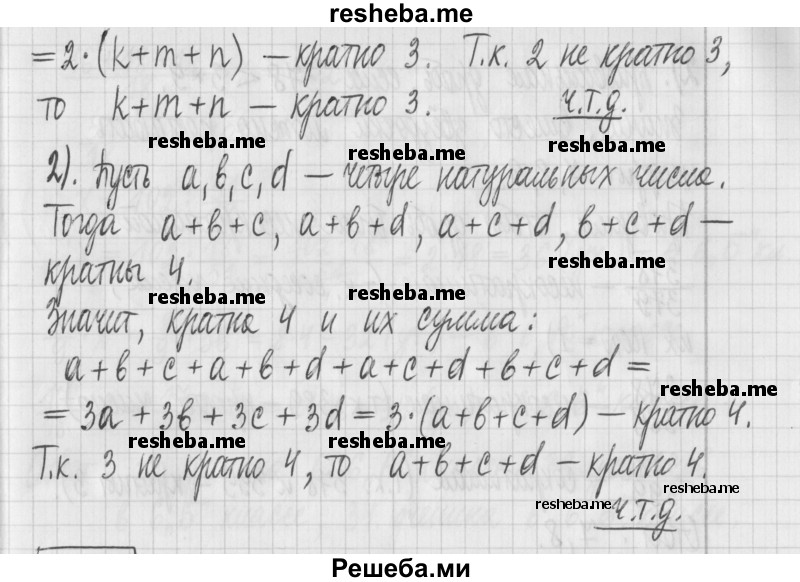 resheba.me
= 2·(k+m+n) – кратно 3. Т.к. 2 не кратно 3,
то k+m+n – кратно 3. ч.т.д.
resheba.me resheba.me
2). Пусть a, в, c, d – четыре натуральных числа.
Тогда a+в+c, a+в+d, a+c+d, в+c+d –
resheba.me
кратны 4.
resheba.me resheba.me
Значит, кратна 4 и их сумма:
a+в+c+a+в+d+a+c+d+в+c+d =
resheba.me
= 3a+3в+3c+3d = 3·(a+в+c+d) – кратно 4.
resheba.me resheba.me
Т.к. 3 не кратно 4, то a+в+c+d – кратно 4.
resheba.me
resheba.me
ч.т.д.
Решеба.ми